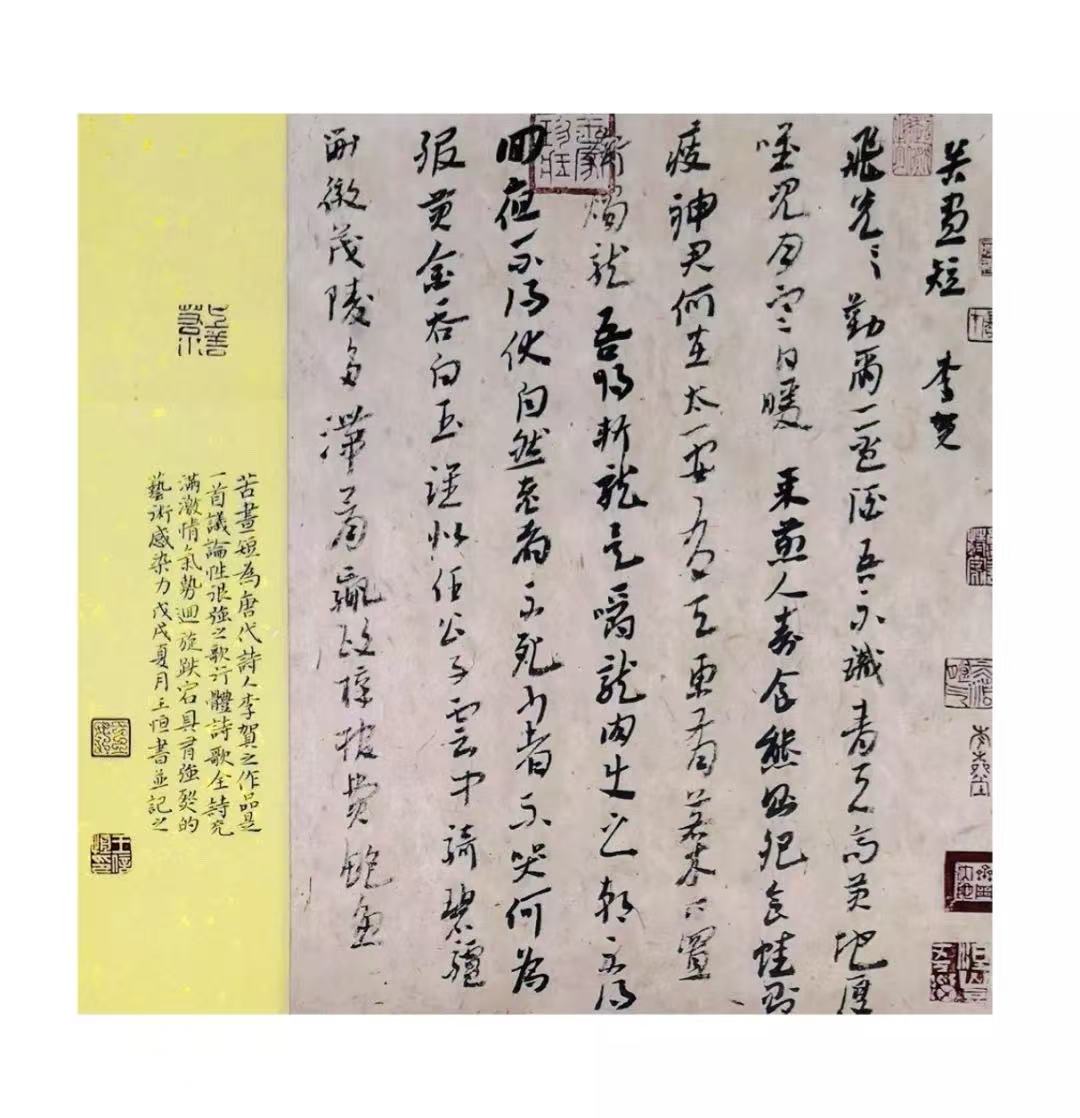 苦晝短 李賀
飛光〻勸爾一盃酒吾不識青天高黃地厚
唯見月寒日暖來煎人壽食熊則肥食蛙則
瘦神君何在太一安有天東有若木下置
銜燭龍吾將斬龍足嚼龍肉使之朝不得
回夜不得伏自然老者不死少者不哭何為
服黃金吞白玉誰似任公子雲中騎碧驢
劉徹茂陵多滯骨嬴政梓棺費鮑魚
苦晝短為唐代詩人李賀之作品是
一首議論性很強之歌行體詩歌全詩充
滿激情氣勢迴旋跌宕具有強烈的
藝術感染力戊戌夏月王恒書並記之